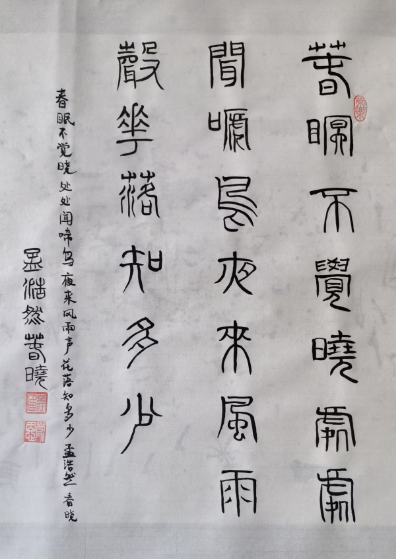 春眠不覺曉處處
聞嗁鳥夜來風雨
聲華落知多少
春眠不觉晓处处闻啼鸟夜来风雨声花落知多少孟浩然春晓
孟浩然春曉